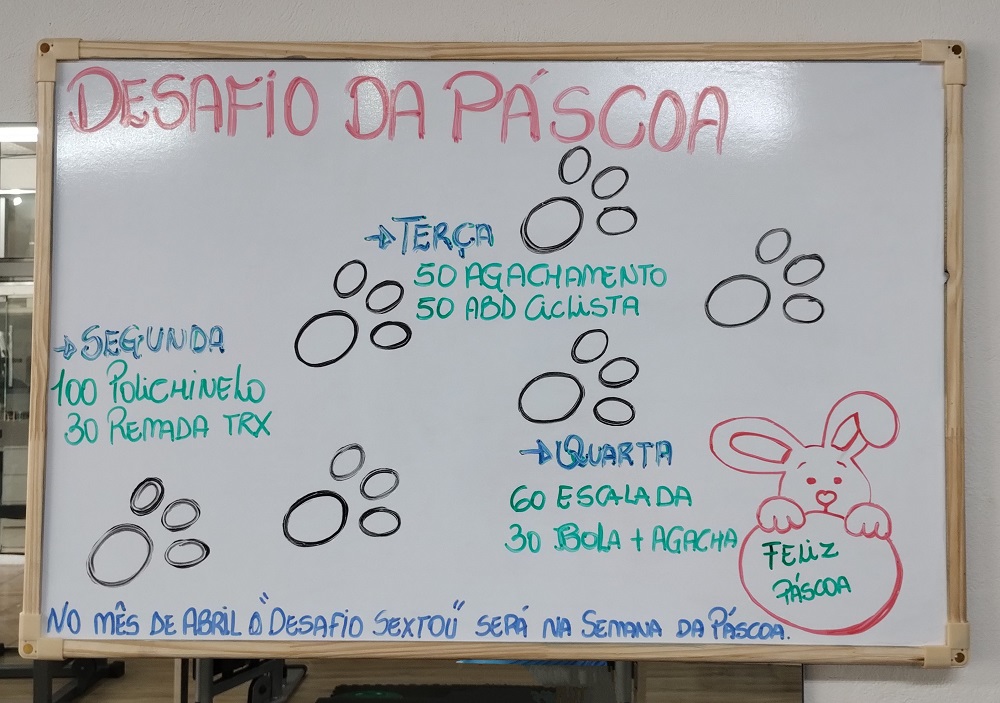 DESAFIO DA PÁSCOA
→ TERÇA
50 AGACHAMENTO
50 ABD CICLISTA
→ SEGUNDA
100 POLICHINELO
30 REMADA TRX
→ QUARTA
60 ESCALADA
30 BOLA + AGACHA
FELIZ
PÁSCOA
NO MÊS DE ABRIL O "DESAFIO SEXTOU" SERÁ NA SEMANA DA PÁSCOA.